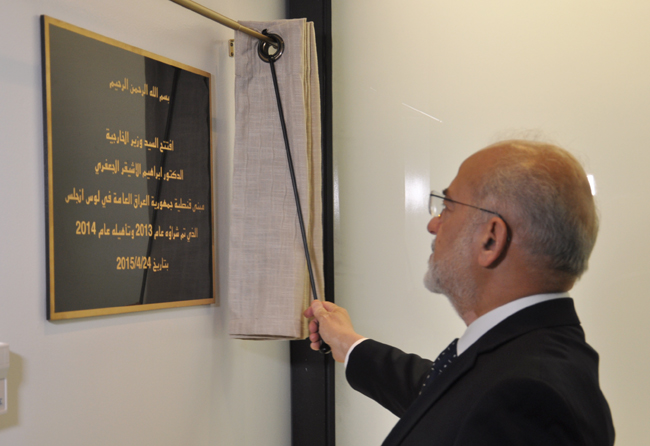 بسم الله الرحمن الرحيم
افتتح السيد وزير الخارجية
الدكتور ابراهيم الاشيقر الجعفري
مبنى قنصلية جمهورية العراق العامة في لوس انجلس
الذي تم شراؤه عام 2013 وتاهيله عام 2014
بتاريخ 2015/4/24